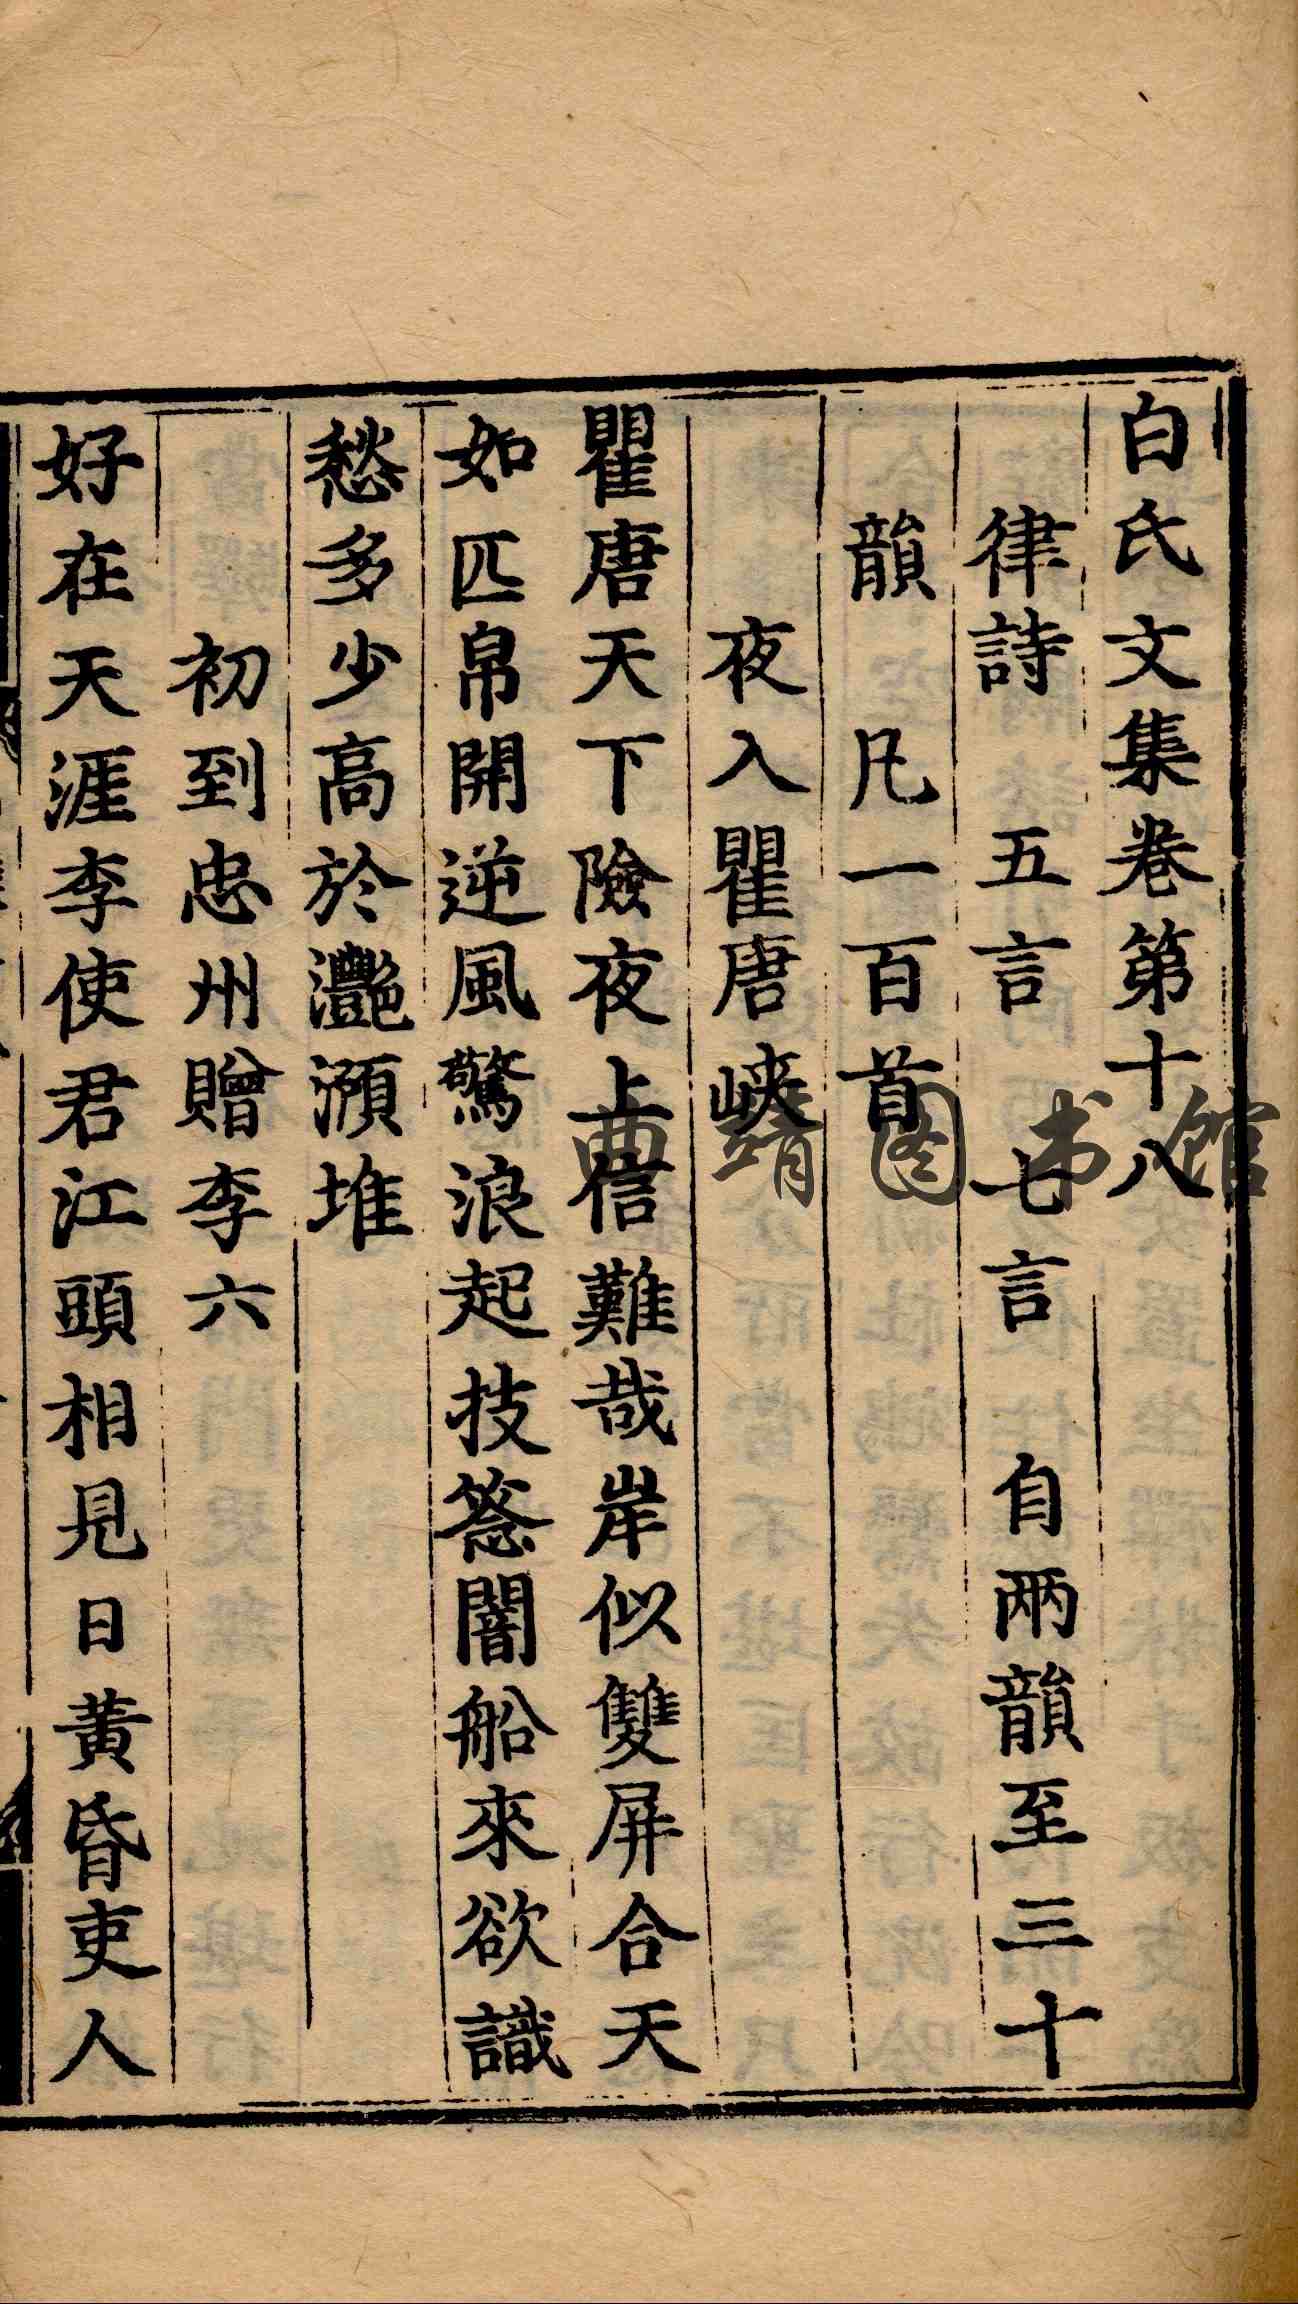 白氏文集卷第十八
律詩 五言 七言 自兩韻至三十
韻 凡一百首
夜入瞿唐峽
瞿唐天下險夜上信難哉岸似雙屏合天
如匹帛開逆風驚浪起技䇲闇船來欲識
愁多少高於灧澦堆
初到忠州贈李六
好在天涯李使君江頭相見日黃昏吏人
曲靖图书馆